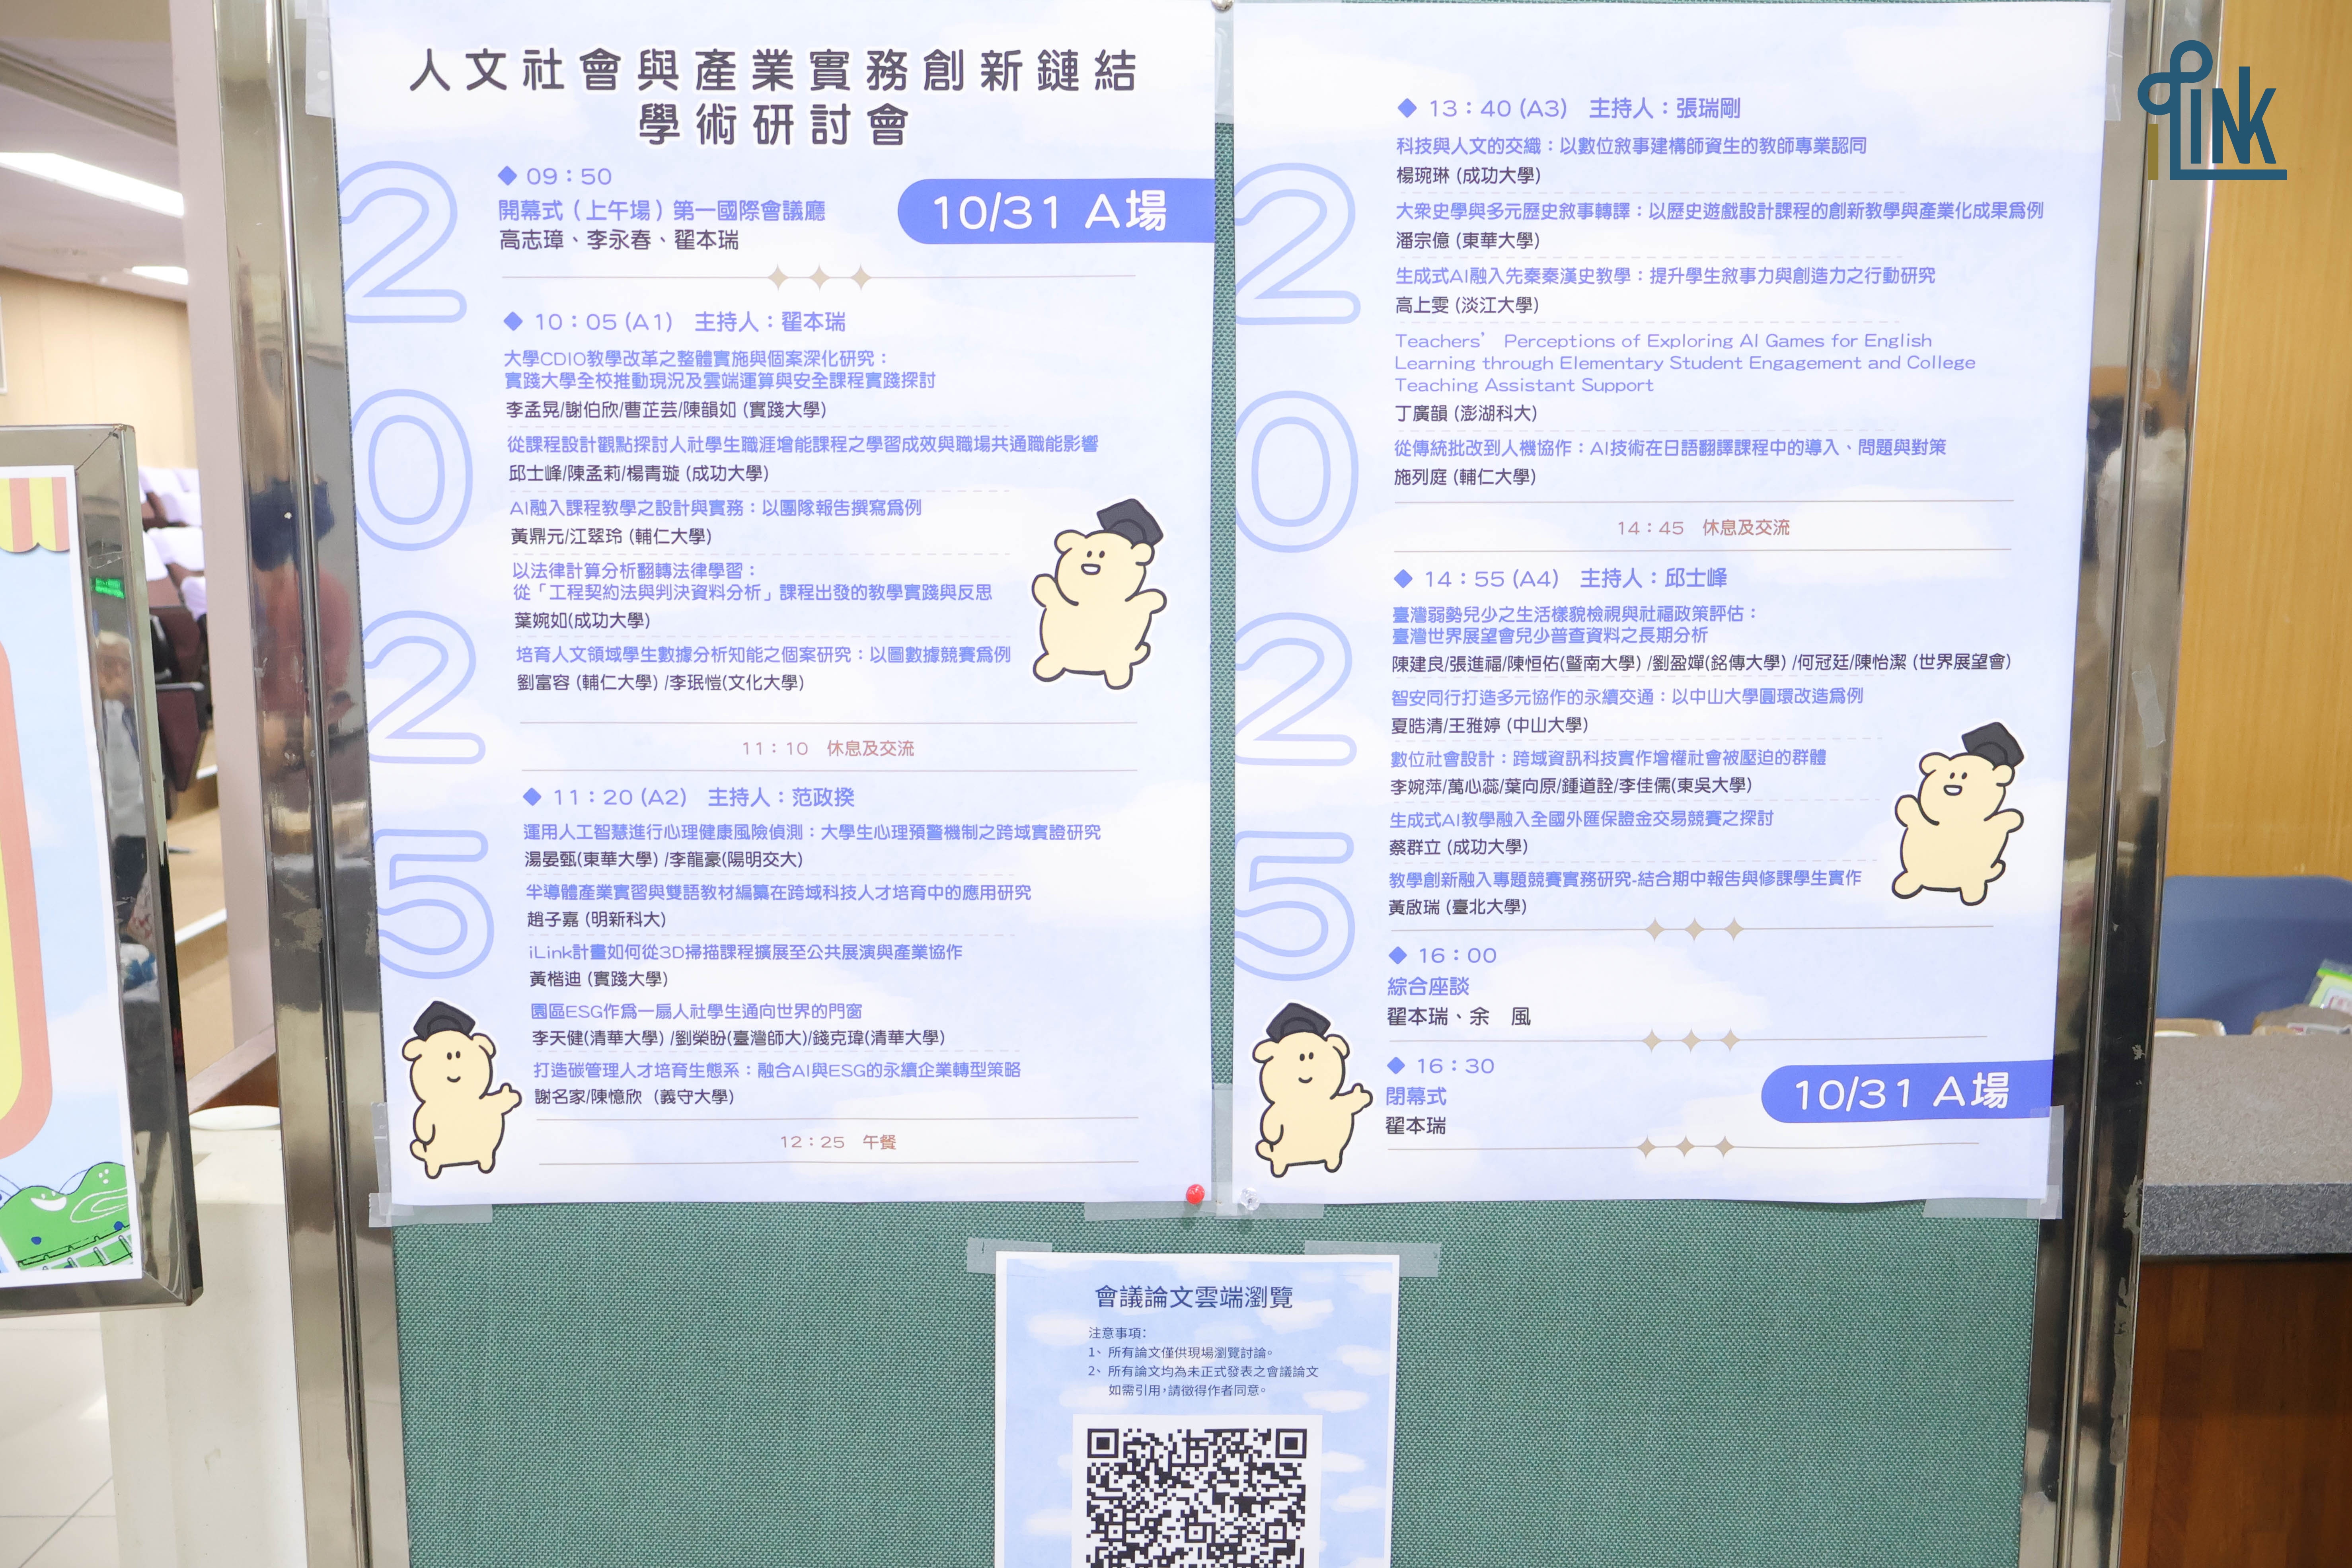 人文社會與產業實務創新鏈結
學術研討會
2025
10/31 A場
◆ 09：50
開幕式（上午場）第一國際會議廳
高志璋、李永春、翟本瑞
◆ 10：05 (A1) 主持人：翟本瑞
大學CDIO教學改革之整體實施與個案深化研究：
實踐大學全校推動現況及雲端運算與安全課程實踐探討
李孟晃/謝伯欣/曹芷芸/陳韻如 (實踐大學)
從課程設計觀點探討人社學生職涯增能課程之學習成效與職場共通職能影響
邱士峰/陳孟莉/楊青璇 (成功大學)
AI融入課程教學之設計與實務：以團隊報告撰寫為例
黃鼎元/江翠玲 (輔仁大學)
以法律計算分析翻轉法律學習：
從「工程契約法與判決資料分析」課程出發的教學實踐與反思
葉婉如(成功大學)
培育人文領域學生數據分析知能之個案研究：以圖數據競賽為例
劉富容 (輔仁大學) /李珉愷(文化大學)
11：10 休息及交流
◆ 11：20 (A2) 主持人：范政揆
運用人工智慧進行心理健康風險偵測：大學生心理預警機制之跨域實證研究
湯晏甄(東華大學) /李龍豪(陽明交大)
半導體產業實習與雙語教材編纂在跨域科技人才培育中的應用研究
趙子嘉 (明新科大)
iLink計畫如何從3D掃描課程擴展至公共展演與產業協作
黃楷迪 (實踐大學)
園區ESG作為一扇人社學生通向世界的門窗
李天健(清華大學) /劉榮盼(臺灣師大)/錢克瑋(清華大學)
打造碳管理人才培育生態系：融合AI與ESG的永續企業轉型策略
謝名家/陳憶欣 (義守大學)
12：25 午餐
2025
◆ 13：40 (A3) 主持人：張瑞剛
科技與人文的交織：以數位敘事建構師資生的教師專業認同
楊琬琳 (成功大學)
大眾史學與多元歷史敘事轉譯：以歷史遊戲設計課程的創新教學與產業化成果為例
潘宗億 (東華大學)
生成式AI融入先秦秦漢史教學：提升學生敘事力與創造力之行動研究
高上雯 (淡江大學)
Teachers’ Perceptions of Exploring AI Games for English
Learning through Elementary Student Engagement and College
Teaching Assistant Support
丁廣韻 (澎湖科大)
從傳統批改到人機協作：AI技術在日語翻譯課程中的導入、問題與對策
施列庭 (輔仁大學)
14：45 休息及交流
◆ 14：55 (A4) 主持人：邱士峰
臺灣弱勢兒少之生活樣貌檢視與社福政策評估：
臺灣世界展望會兒少普查資料之長期分析
陳建良/張進福/陳恒佑(暨南大學) /劉盈嬋(銘傳大學) /何冠廷/陳怡潔 (世界展望會)
智安同行打造多元協作的永續交通：以中山大學圓環改造為例
夏晧清/王雅婷 (中山大學)
數位社會設計：跨域資訊科技實作增權社會被壓迫的群體
李婉萍/萬心蕊/葉向原/鍾道詮/李佳儒(東吳大學)
生成式AI教學融入全國外匯保證金交易競賽之探討
蔡群立 (成功大學)
教學創新融入專題競賽實務研究-結合期中報告與修課學生實作
黃啟瑞 (臺北大學)
◆ 16：00
綜合座談
翟本瑞、余 風
◆ 16：30
閉幕式
翟本瑞
10/31 A場
會議論文雲端瀏覽
注意事項:
1、所有論文僅供現場瀏覽討論。
2、所有論文均為未正式發表之會議論文
如需引用，請徵得作者同意。
iLINK